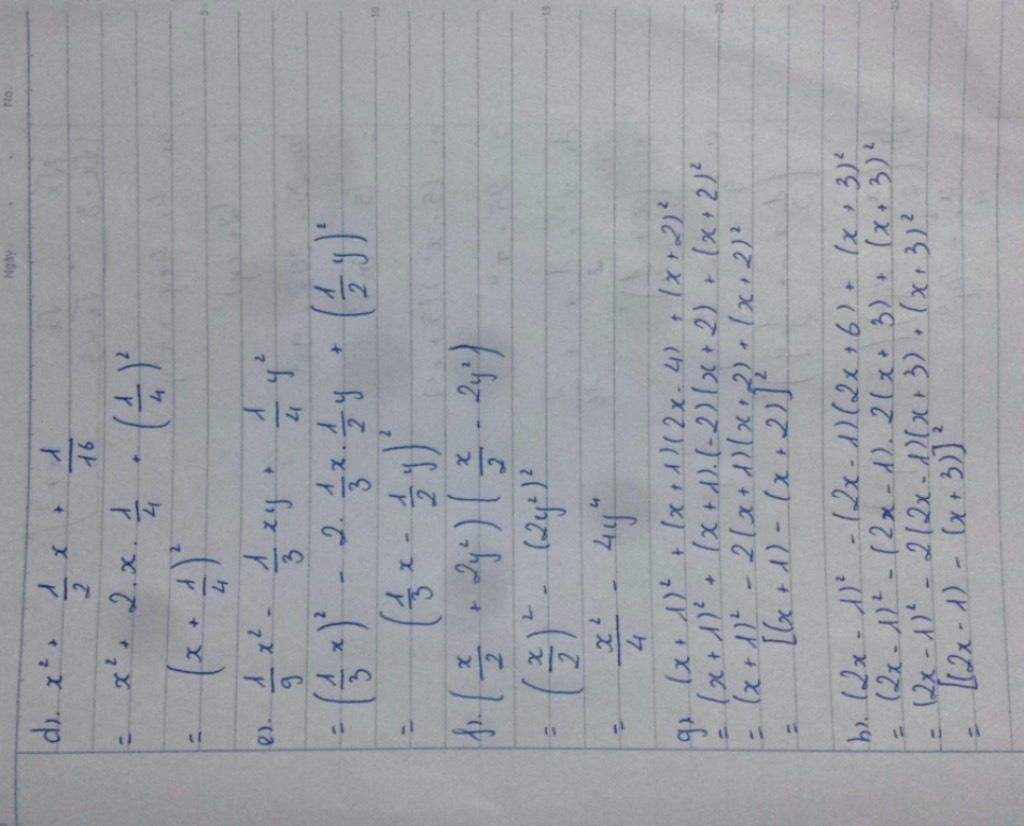 Ngày No.
d). x² + 1/2 x + 1/16
= x² + 2.x.1/4 + (1/4)²
= (x + 1/4)²
e). 1/9 x² - 1/3 xy + 1/4 y²
= (1/3 x)² - 2.1/3 x.1/2 y + (1/2 y)²
= (1/3 x - 1/2 y)²
f). (x/2 + 2y²)(x/2 - 2y²)
= (x/2)² - (2y²)²
= x²/4 - 4y⁴
g). (x + 1)² + (x + 1)(2x - 4) + (x + 2)²
= (x + 1)² + (x + 1).(-2)(x + 2) + (x + 2)²
= (x + 1)² - 2(x + 1)(x + 2) + (x + 2)²
= [(x + 1) - (x + 2)]²
h). (2x - 1)² - (2x - 1)(2x + 6) + (x + 3)²
= (2x - 1)² - (2x - 1).2(x + 3) + (x + 3)²
= (2x - 1)² - 2(2x - 1)(x + 3) + (x + 3)²
= [(2x - 1) - (x + 3)]²
5
10
15
20
25